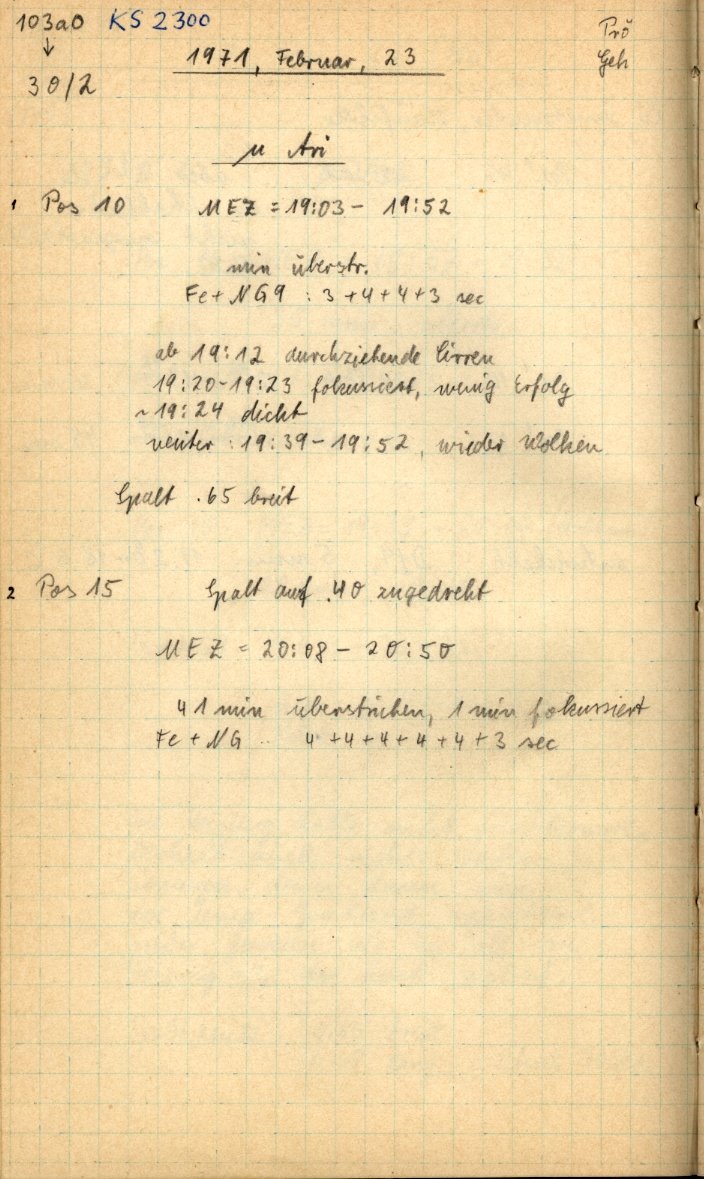 103aO KS 2300
Prö
↓
Geh
1971, Februar, 23
30/2
μ Ari
1 Pos 10 MEZ = 19:03 - 19:52
min überstr.
Fe + NG9 : 3 + 4 + 4 + 3 sec
ab 19:12 durchziehende Cirren
19:20-19:23 fokussiert, wenig Erfolg
~19:24 dicht
weiter : 19:39 - 19:52, wieder Wolken
Spalt .65 breit
2 Pos 15 Spalt auf .40 zugedreht
MEZ = 20:08 - 20:50
41 min überstrichen, 1 min fokussiert
Fe + NG 4 + 4 + 4 + 4 + 4 + 3 sec